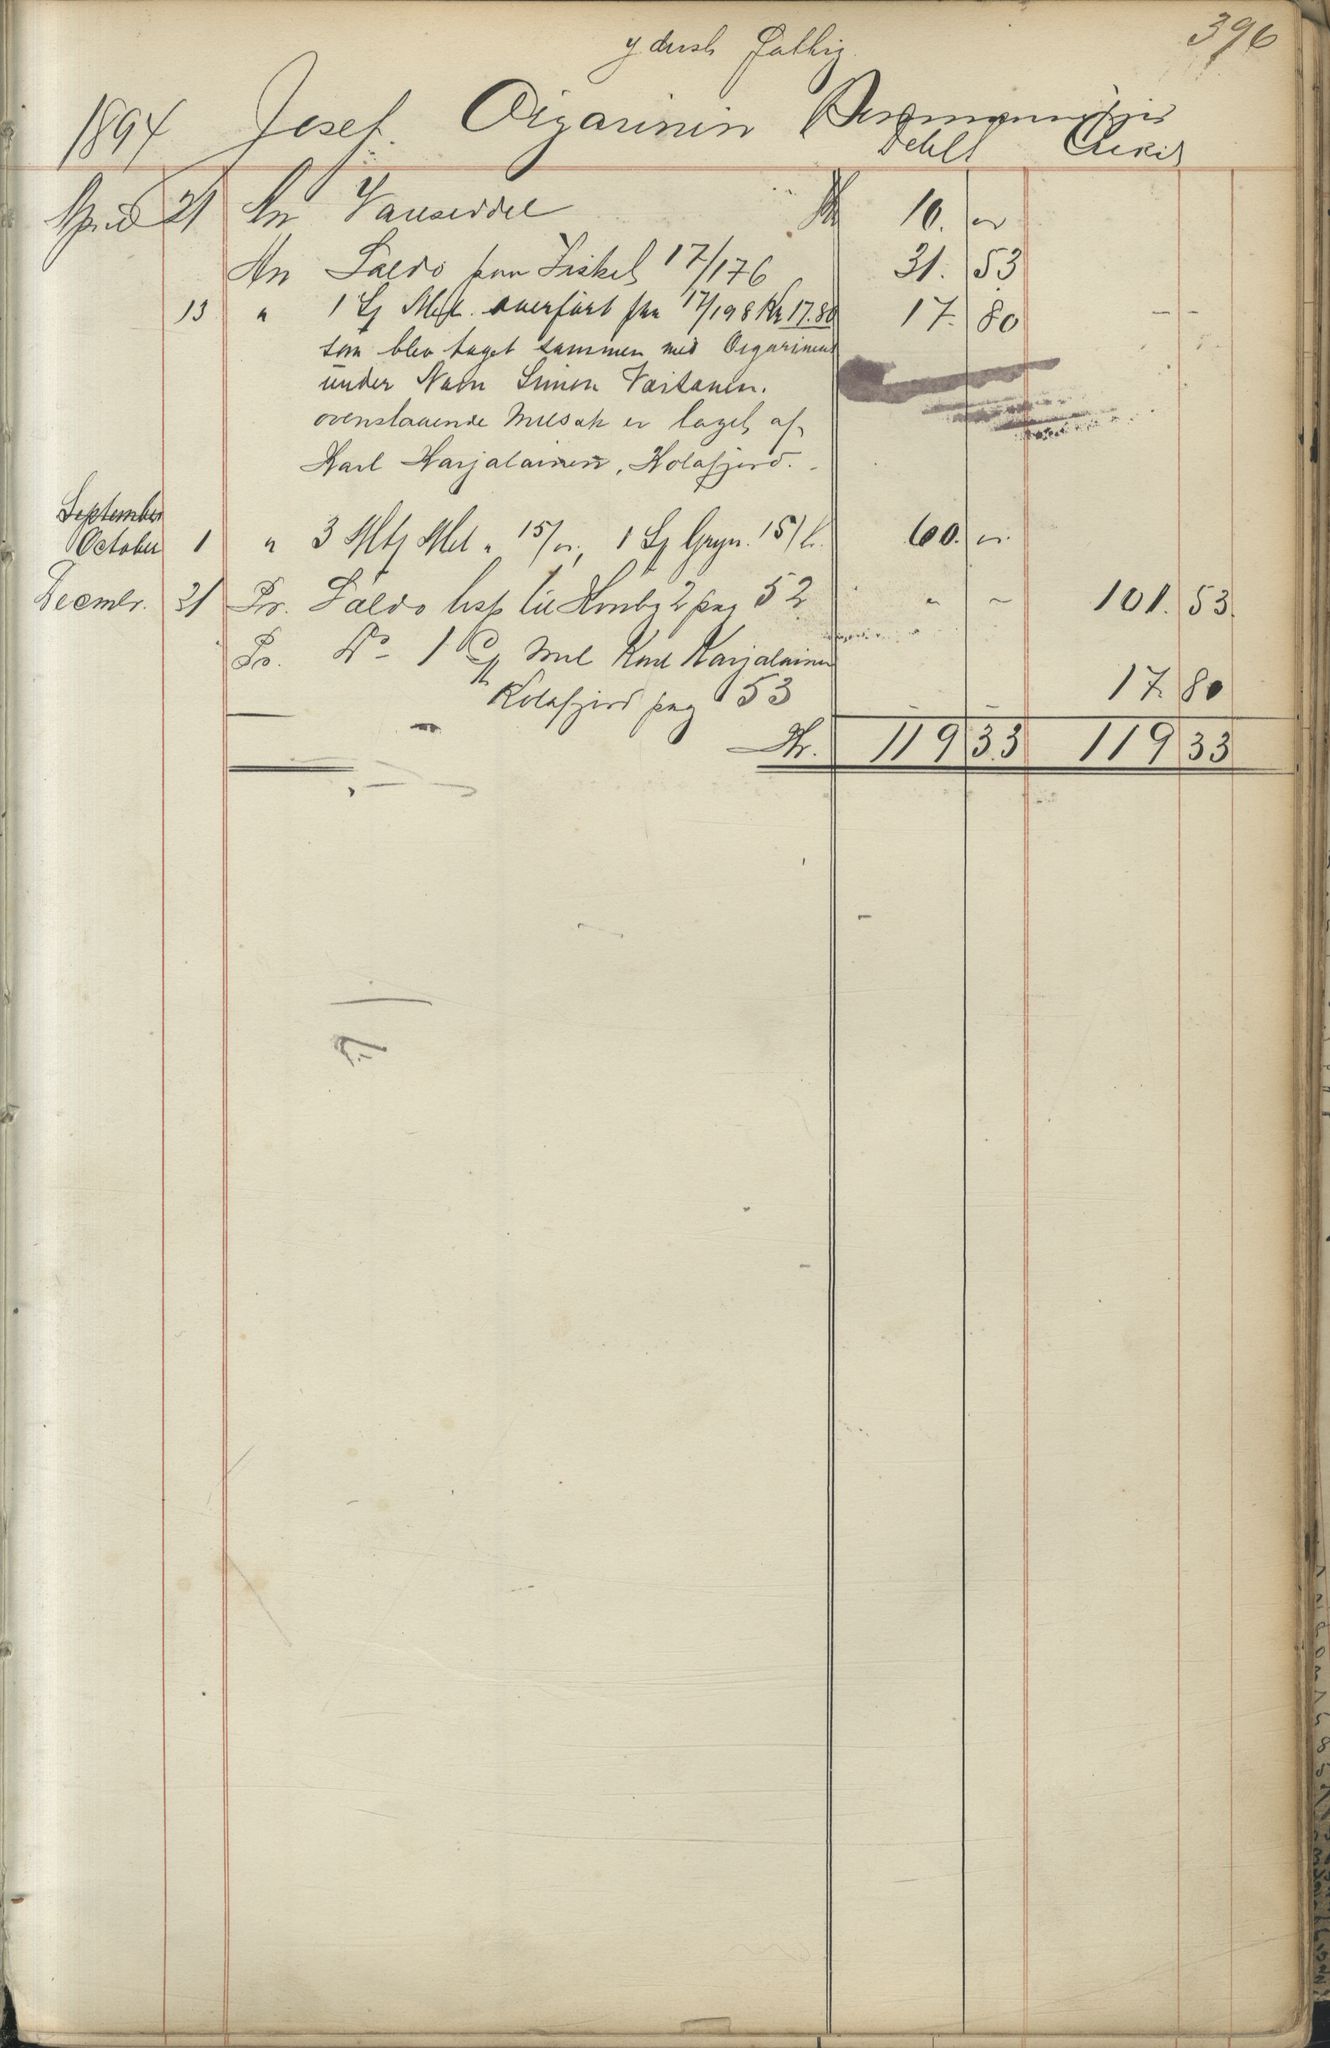 396
ydersk fattig
1894 Josef. Oigarinin
Debet Credit
April 21 An Vareseddel Kr 10. "
An Saldo paa Fiskeb 17/176 31. 53
13 " 1 Sæ Mel. overført fra 17/198 Kr 17.80 17. 80
som blev taget sammen med Oigarinens
under Navn Simon Vaitanen.
ovenstaaende Melsæk er taget af
Karl Karjalainen, Kolafjord.
September
October 1 " 3 Mtt Mel " 15/", 1 Sæ Gryn. 15/ 60. "
Decmbr. 21 Pr. Saldo Hovbg 2 pag 52 " " 101. 53.
Pr. Do 1 Mel Karl Karjalainen
Kolafjord pag 53 17. 80
Kr. 119 33 119 33